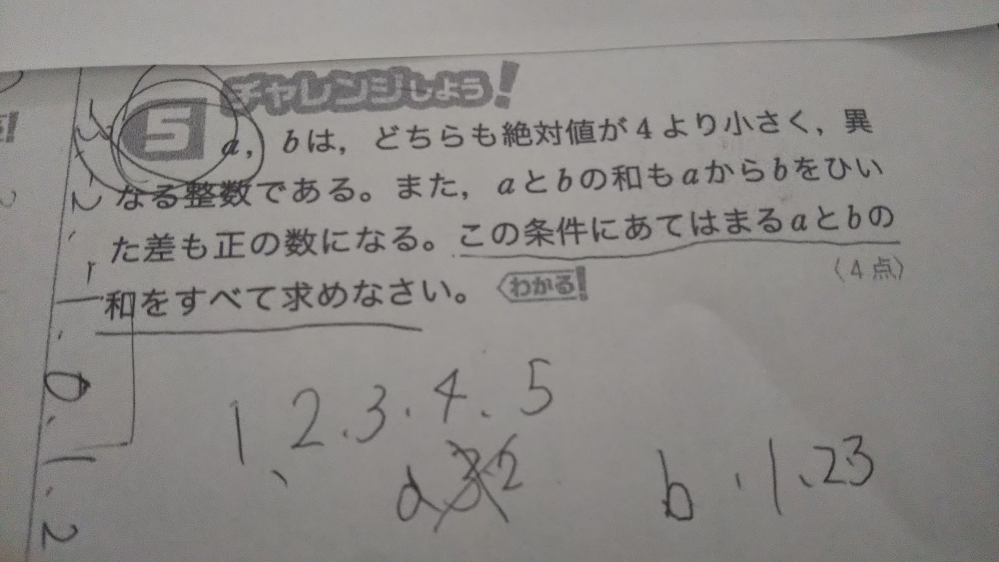 チャレンジしよう!
5 a，bは，どちらも絶対値が4より小さく，異
なる整数である。また，aとbの和もaからbをひい
た差も正の数になる。この条件にあてはまるaとbの
和をすべて求めなさい。 わかる!
〈4点〉
1、2、3、4、5
b・1、23